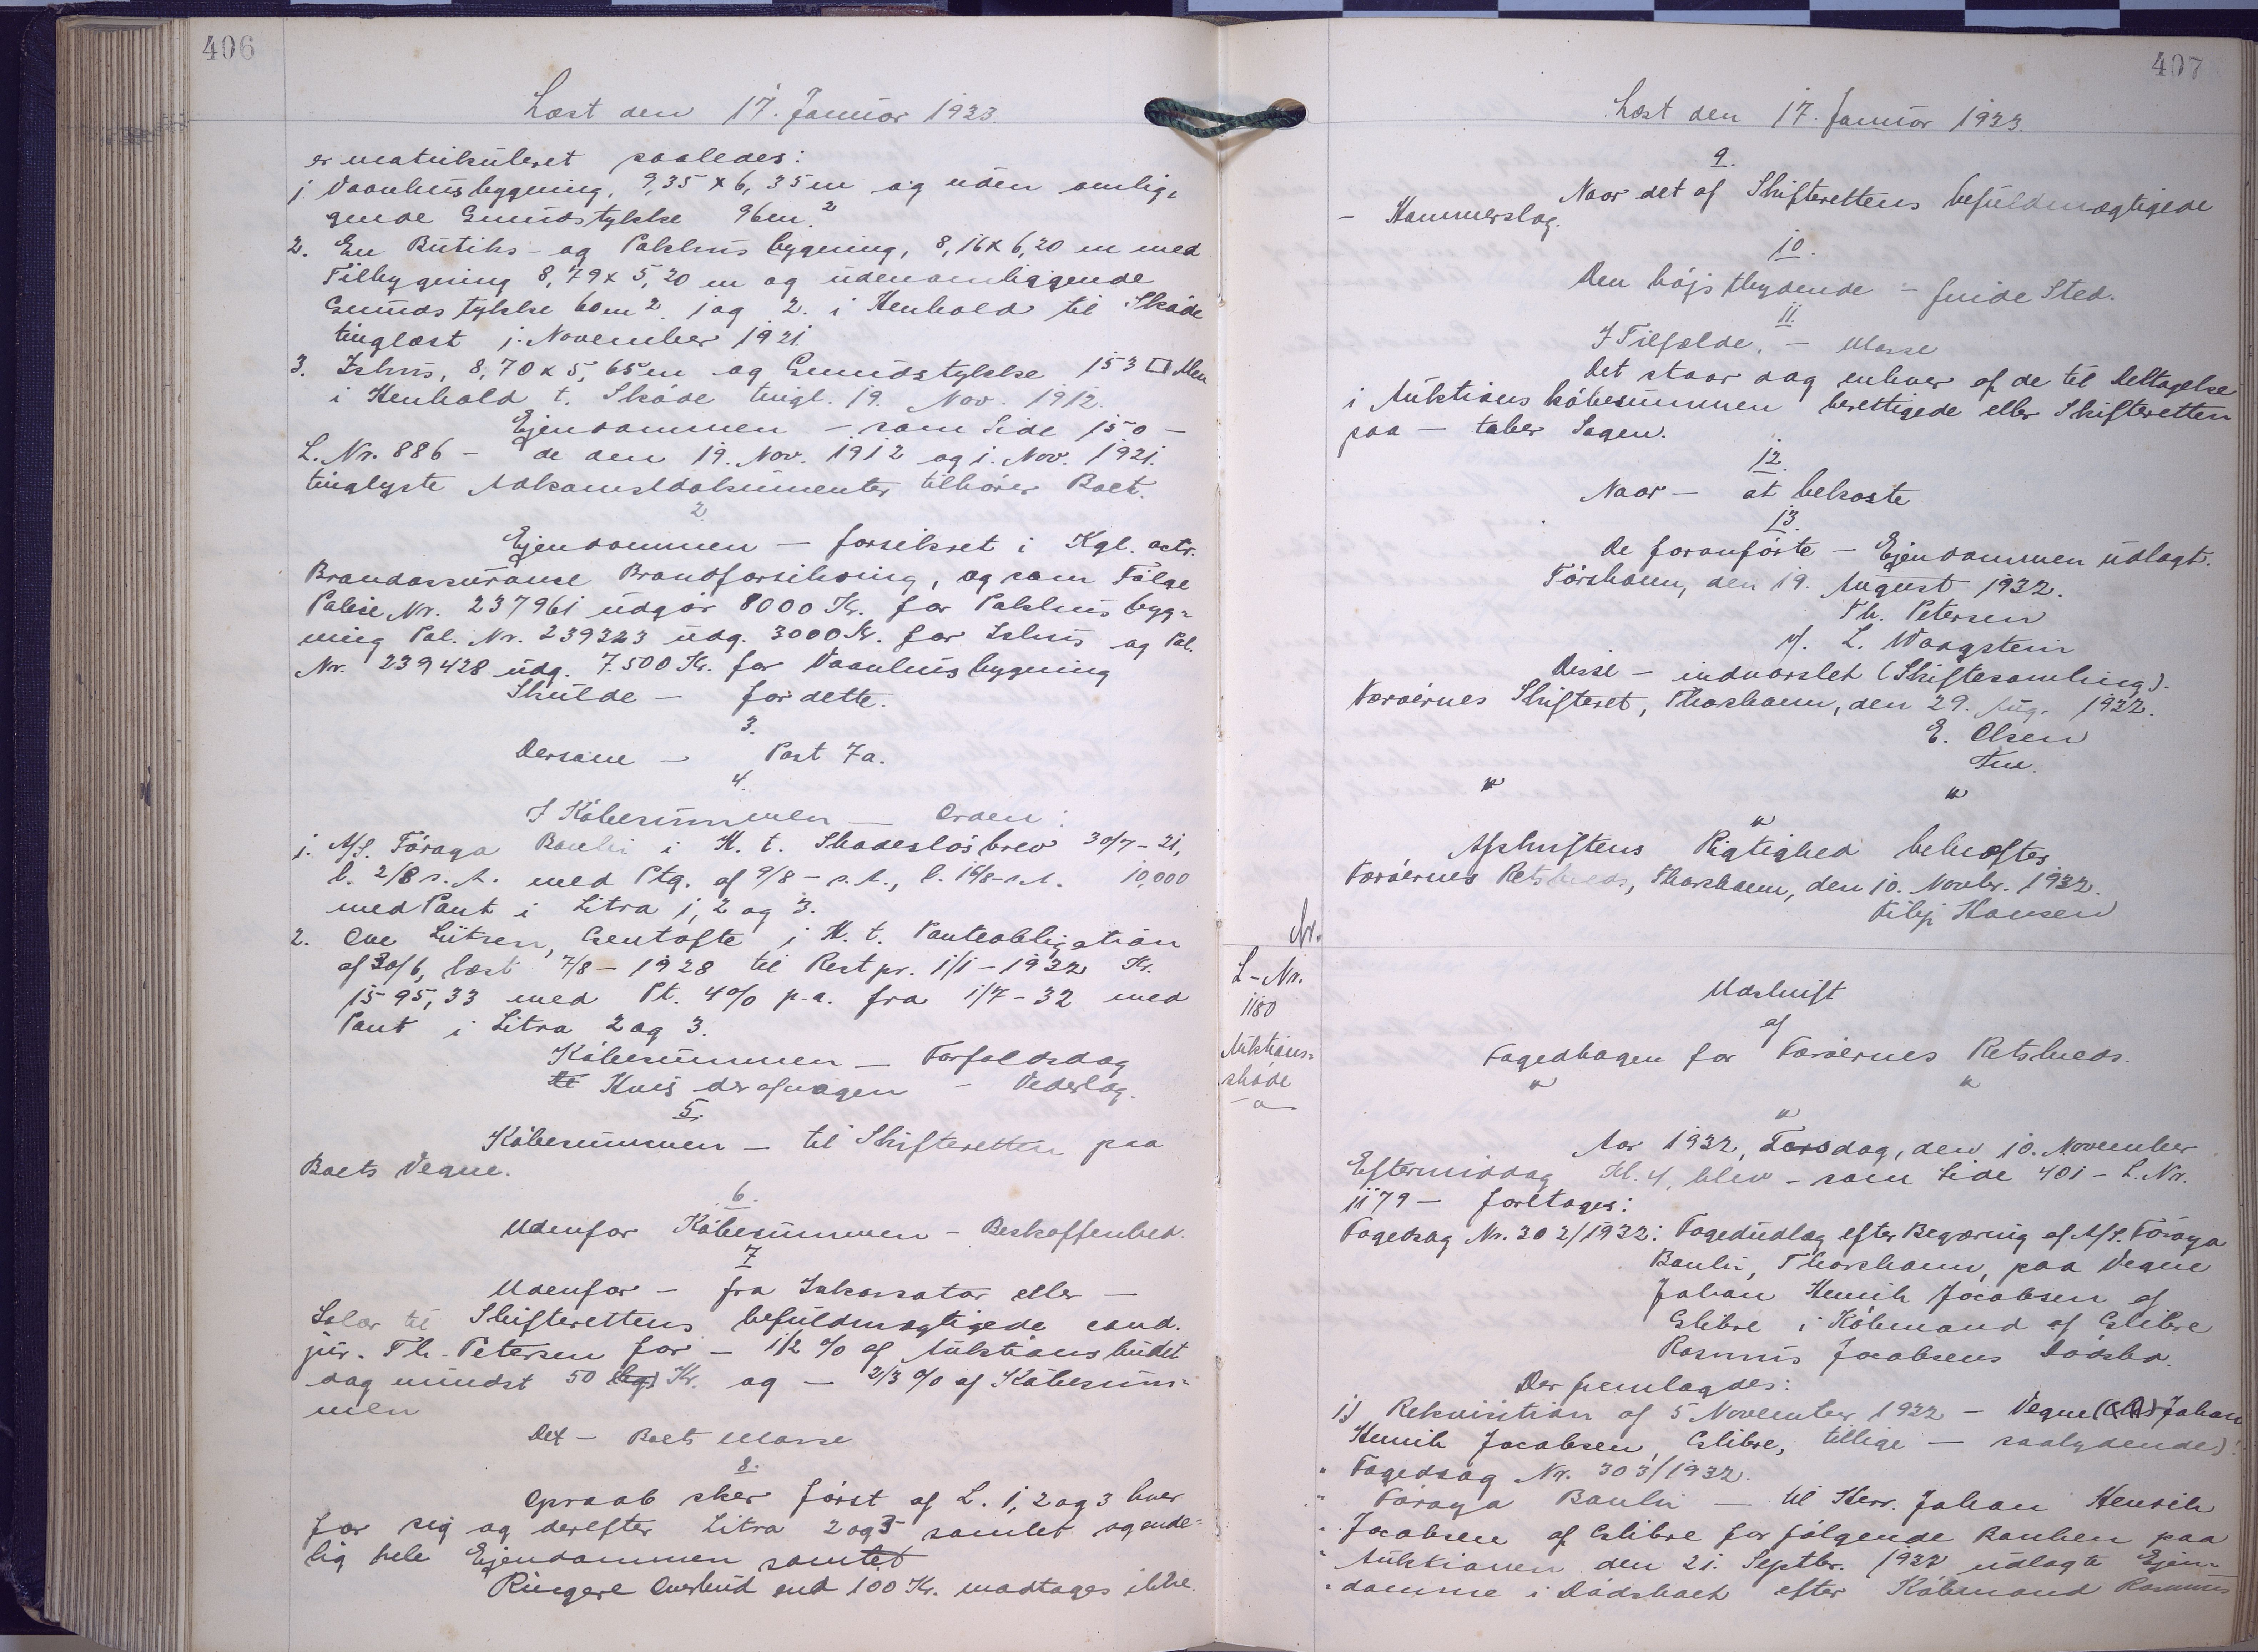 406
Læst den 17. Januar 1933.
er matrikuleret saaledes:
1. Vaanhusbygning, 9,35 x 6,35 m og uden omlig-
gende Grundstykke 96 m.²
2. En Butiks- og Pakhusbygning, 8,16 x 6,20 m med
Tilbygning 8,79 x 5,20 m og udenomliggende
Grundstykke 60 m2. 1 og 2. i Henhold til Skøde
tinglæst 1. November 1921
3. Ishus, 8,70 x 5,65 m og Grundstykke 153 □ Alen
i Henhold t. Skøde tingl. 19. Nov. 1912.
Ejendommen – som Side 150 –
L. Nr. 886 – de den 19. Nov. 1912 og 1. Nov. 1921.
tinglyste Adkomstdokumenter tilhører Boet.
2.
Ejendommen – forsikret i Kgl. octr.
Brandassurance Brandforsikring, og som Følge
Police Nr. 237961 udgør 8000 Kr. for Pakhusbyg-
ning Pol. Nr. 239323 udg. 3000 Kr. for Ishus og Pol.
Nr. 239428 udg. 7.500 Kr. for Vaanhusbygning
Skulde – for dette.
3.
Dersom – Post 7a.
4.
I Købesummen – Orden:
1. A/S. Føroya Banki i H. t. Skadesløsbrev 30/7-21,
l. 2/8 s.A. med Ptg. af 9/8 - s.A., l. 16/8 - s.A. 10,000
med Pant i Litra 1, 2 og 3.
2. Ove Lützen, Gentofte i H. t. Panteobligation
af 30/6, læst 7/8 - 1928 til Rest pr. 1/1 - 1932 Kr.
1595,33 med Rt. 4% p.a. fra 1/7-32 med
Pant i Litra 2 og 3.
Købesummen – Forfaldsdag
Hvis der afvagen – Vederlag.
5.
Købesummen – til Skifteretten paa
Boets Vegne.
6.
Udenfor Købesummen – Beskaffenhed.
7
Udenfor – fra Inkassator eller –
Salær til Skifterettens befuldmægtigede cand.
jur. Th. Petersen for – 1/2 % af Auktionsbudet
dog mindst 50 Kr. og – 2/3 % af Købesum-
men
Det – Boets Masse
8.
Opraab sker først af L. 1, 2 og 3 hver
for sig og derefter Litra 2 og 3 samlet og ende-
lig hele Ejendommen samlet
Ringere Overbud end 100 Kr. modtages ikke.
407
Læst den 17. Januar 1933.
9.
Naar det af Skifterettens befuldmægtigede
– Hammerslag.
10.
Den højstbydende – finde Sted.
11.
I Tilfælde. – Masse
Det staar dog enhver af de til Deltagelse
i Auktionskøbesummen berettigede eller Skifteretten
paa – taber Sagen.
12.
Naar – at bekoste
13.
De foranførte – Ejendommen udlagt.
Tórshavn, den 19. August 1932.
Th. Petersen
L. Waagstein
Disse – indvarslet (Skiftesamling).
Færøernes Skifteret, Thorshavn, den 29. Aug. 1932.
E. Olsen
Fm.
" " "
Afskriftens Rigtighed bekræftes.
Færøernes Retskreds, Thorshavn, den 10. Novbr. 1932.
Filip Hansen
Nr.
L-Nr.
1180
Auktions-
skøde
Udskrift
af
Fogedbogen for Færøernes Retskreds.
" " "
Aar 1932, Torsdag, den 10. November
Eftermiddag Kl. 4, blev – som Side 401 – L. Nr.
1179 – foretages:
Fogedsag Nr. 302/1932: Fogedudlæg efter Begæring af A/S. Føroya
Banki, Thorshavn, paa Vegne
Johan Henrik Jacobsen af
Glibre i Købmand af Glibre
Rasmus Jacobsens Dødsbo.
Der fremlagdes:
1) Rekvisition af 5 November 1932 – Vegne Johan
Henrik Jacobsen, Glibre, tillige – saalydende):
" Fogedsag Nr. 303/1932.
" Føroya Banki – til Herr. Johan Henrik
" Jacobsen af Glibre for følgende Banken paa
" Auktionen den 21. Septbr. 1932 udlagte Ejen-
" domme i Dødsboet efter Købmand Rasmus